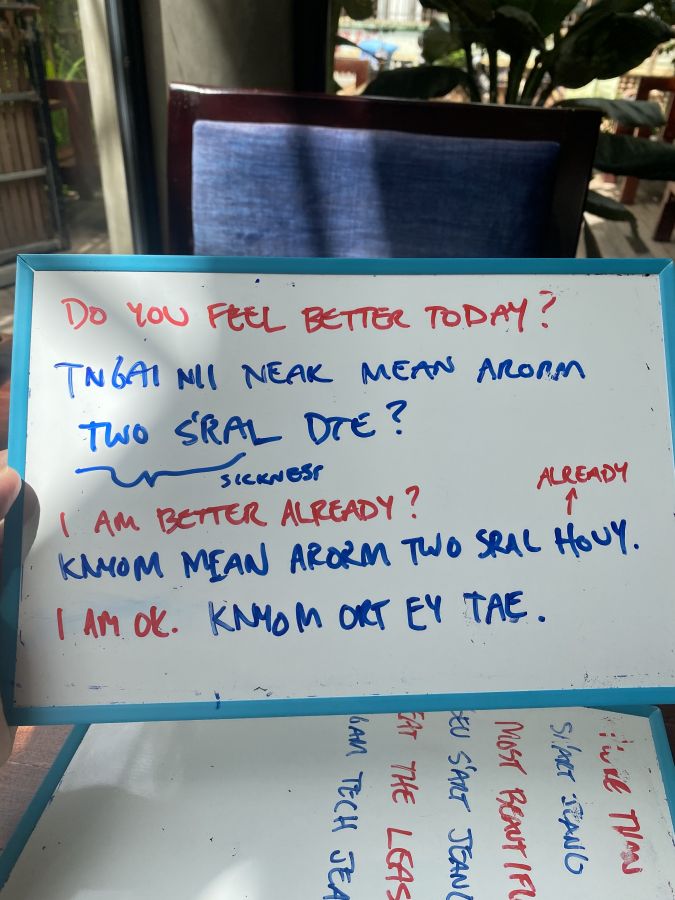 DO YOU FEEL BETTER TODAY?
TNGAI NII NEAK MEAN ARORM
TWO S'RAL DTE?
SICKNESS
ALREADY
I AM BETTER ALREADY?
KNYOM MEAN ARORM TWO SRAL HOUY.
I AM OK. KNYOM ORT EY TAE.
THAN
S'ART JEANG
MOST BEAUTIFU
S'ART JEANG
EAT THE LEAS
GAM TECH JEA